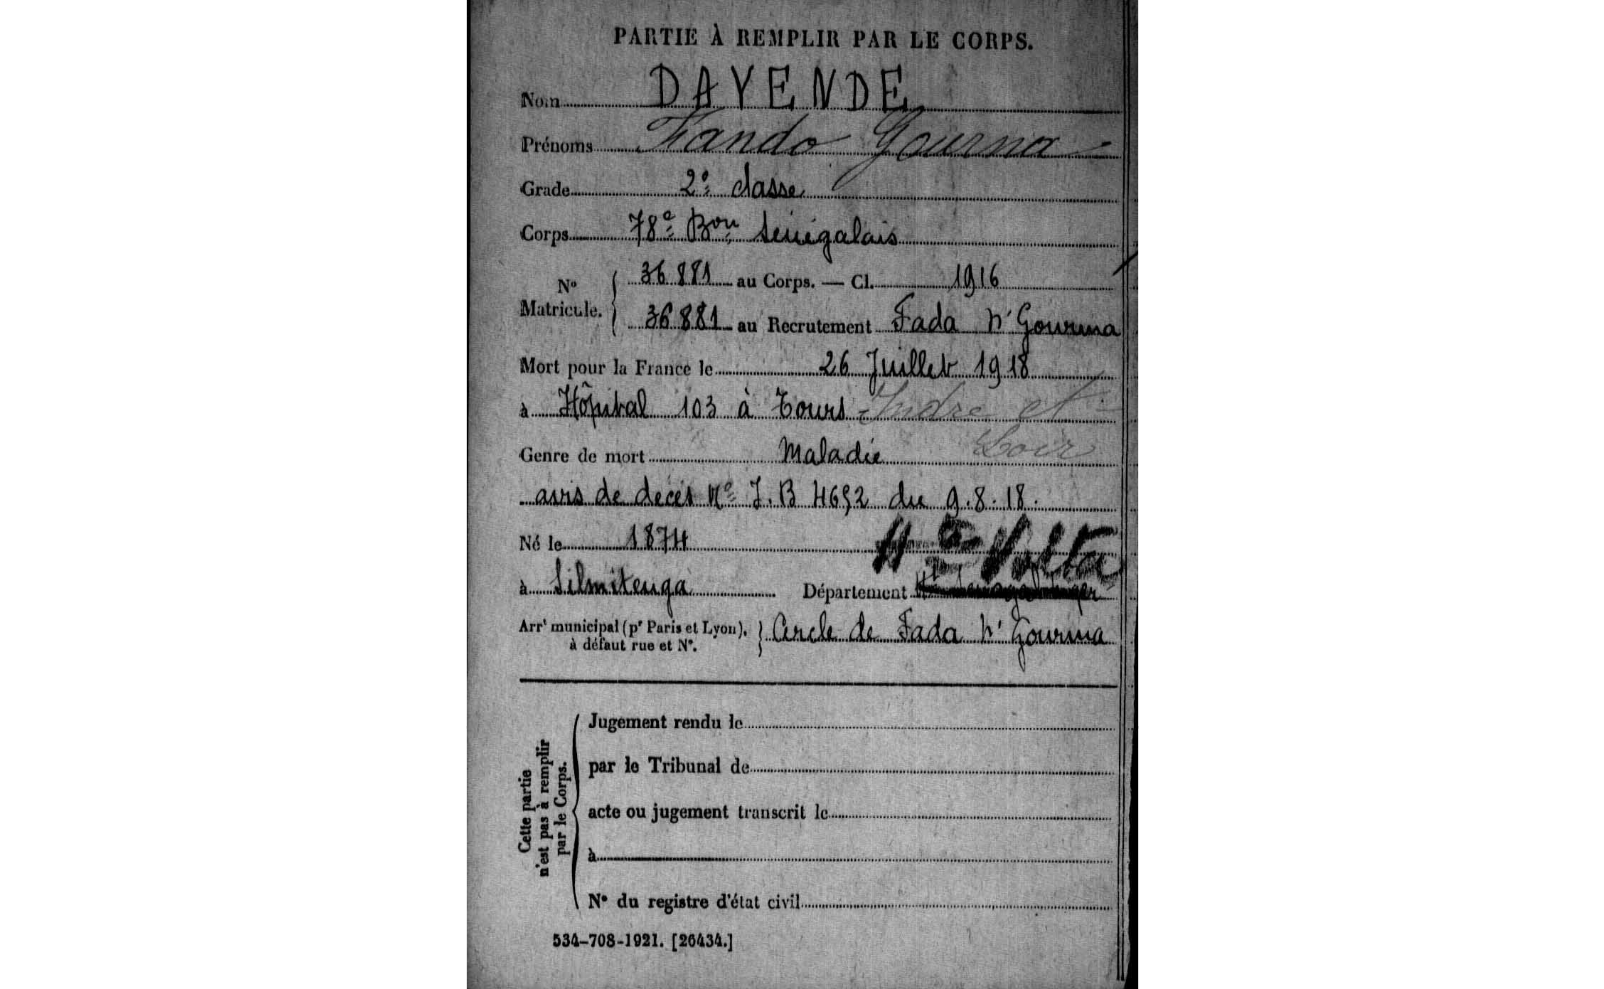 PARTIE À REMPLIR PAR LE CORPS.
Nom DAYENDE
Prénoms Fando Gourma
Grade 2e classe
Corps 78e Bon Sénégalais
No Matricule. 36881 au Corps. — Cl. 1916
36881 au Recrutement Fada N'Gourma
Mort pour la France le 26 Juillet 1918
à Hôpital 103 à Tours Indre et
Loir
Genre de mort Maladie
avis de decès No J.B 4692 du 9.8.18.
Né le 1874
Hte Volta
à Silmitenga Département
Arrt municipal (pr Paris et Lyon), à défaut rue et No. Cercle de Fada N'Gourma
Cette partie n'est pas à remplir par le Corps.
Jugement rendu le
par le Tribunal de
acte ou jugement transcrit le
à
No du registre d'état civil
534-708-1921. [26434.]